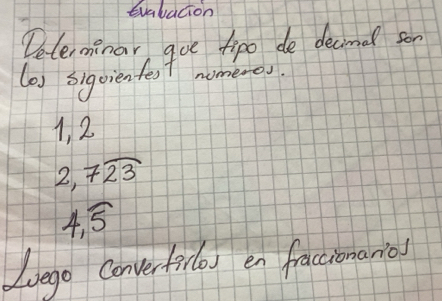 Evaluación
Determinar que tipo de decimal son
los siguientes numeros.
1,2
2,7\overline{23}
4,\overline{5}
Luego convertirlos en fraccionarios